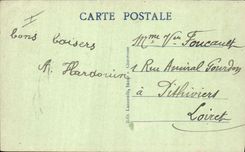 CARTE POSTALE
Bons baisers
A. Hardouin
Mme Vve Foucault
1 Rue Amiral Gourdon
à Pithiviers
Loiret